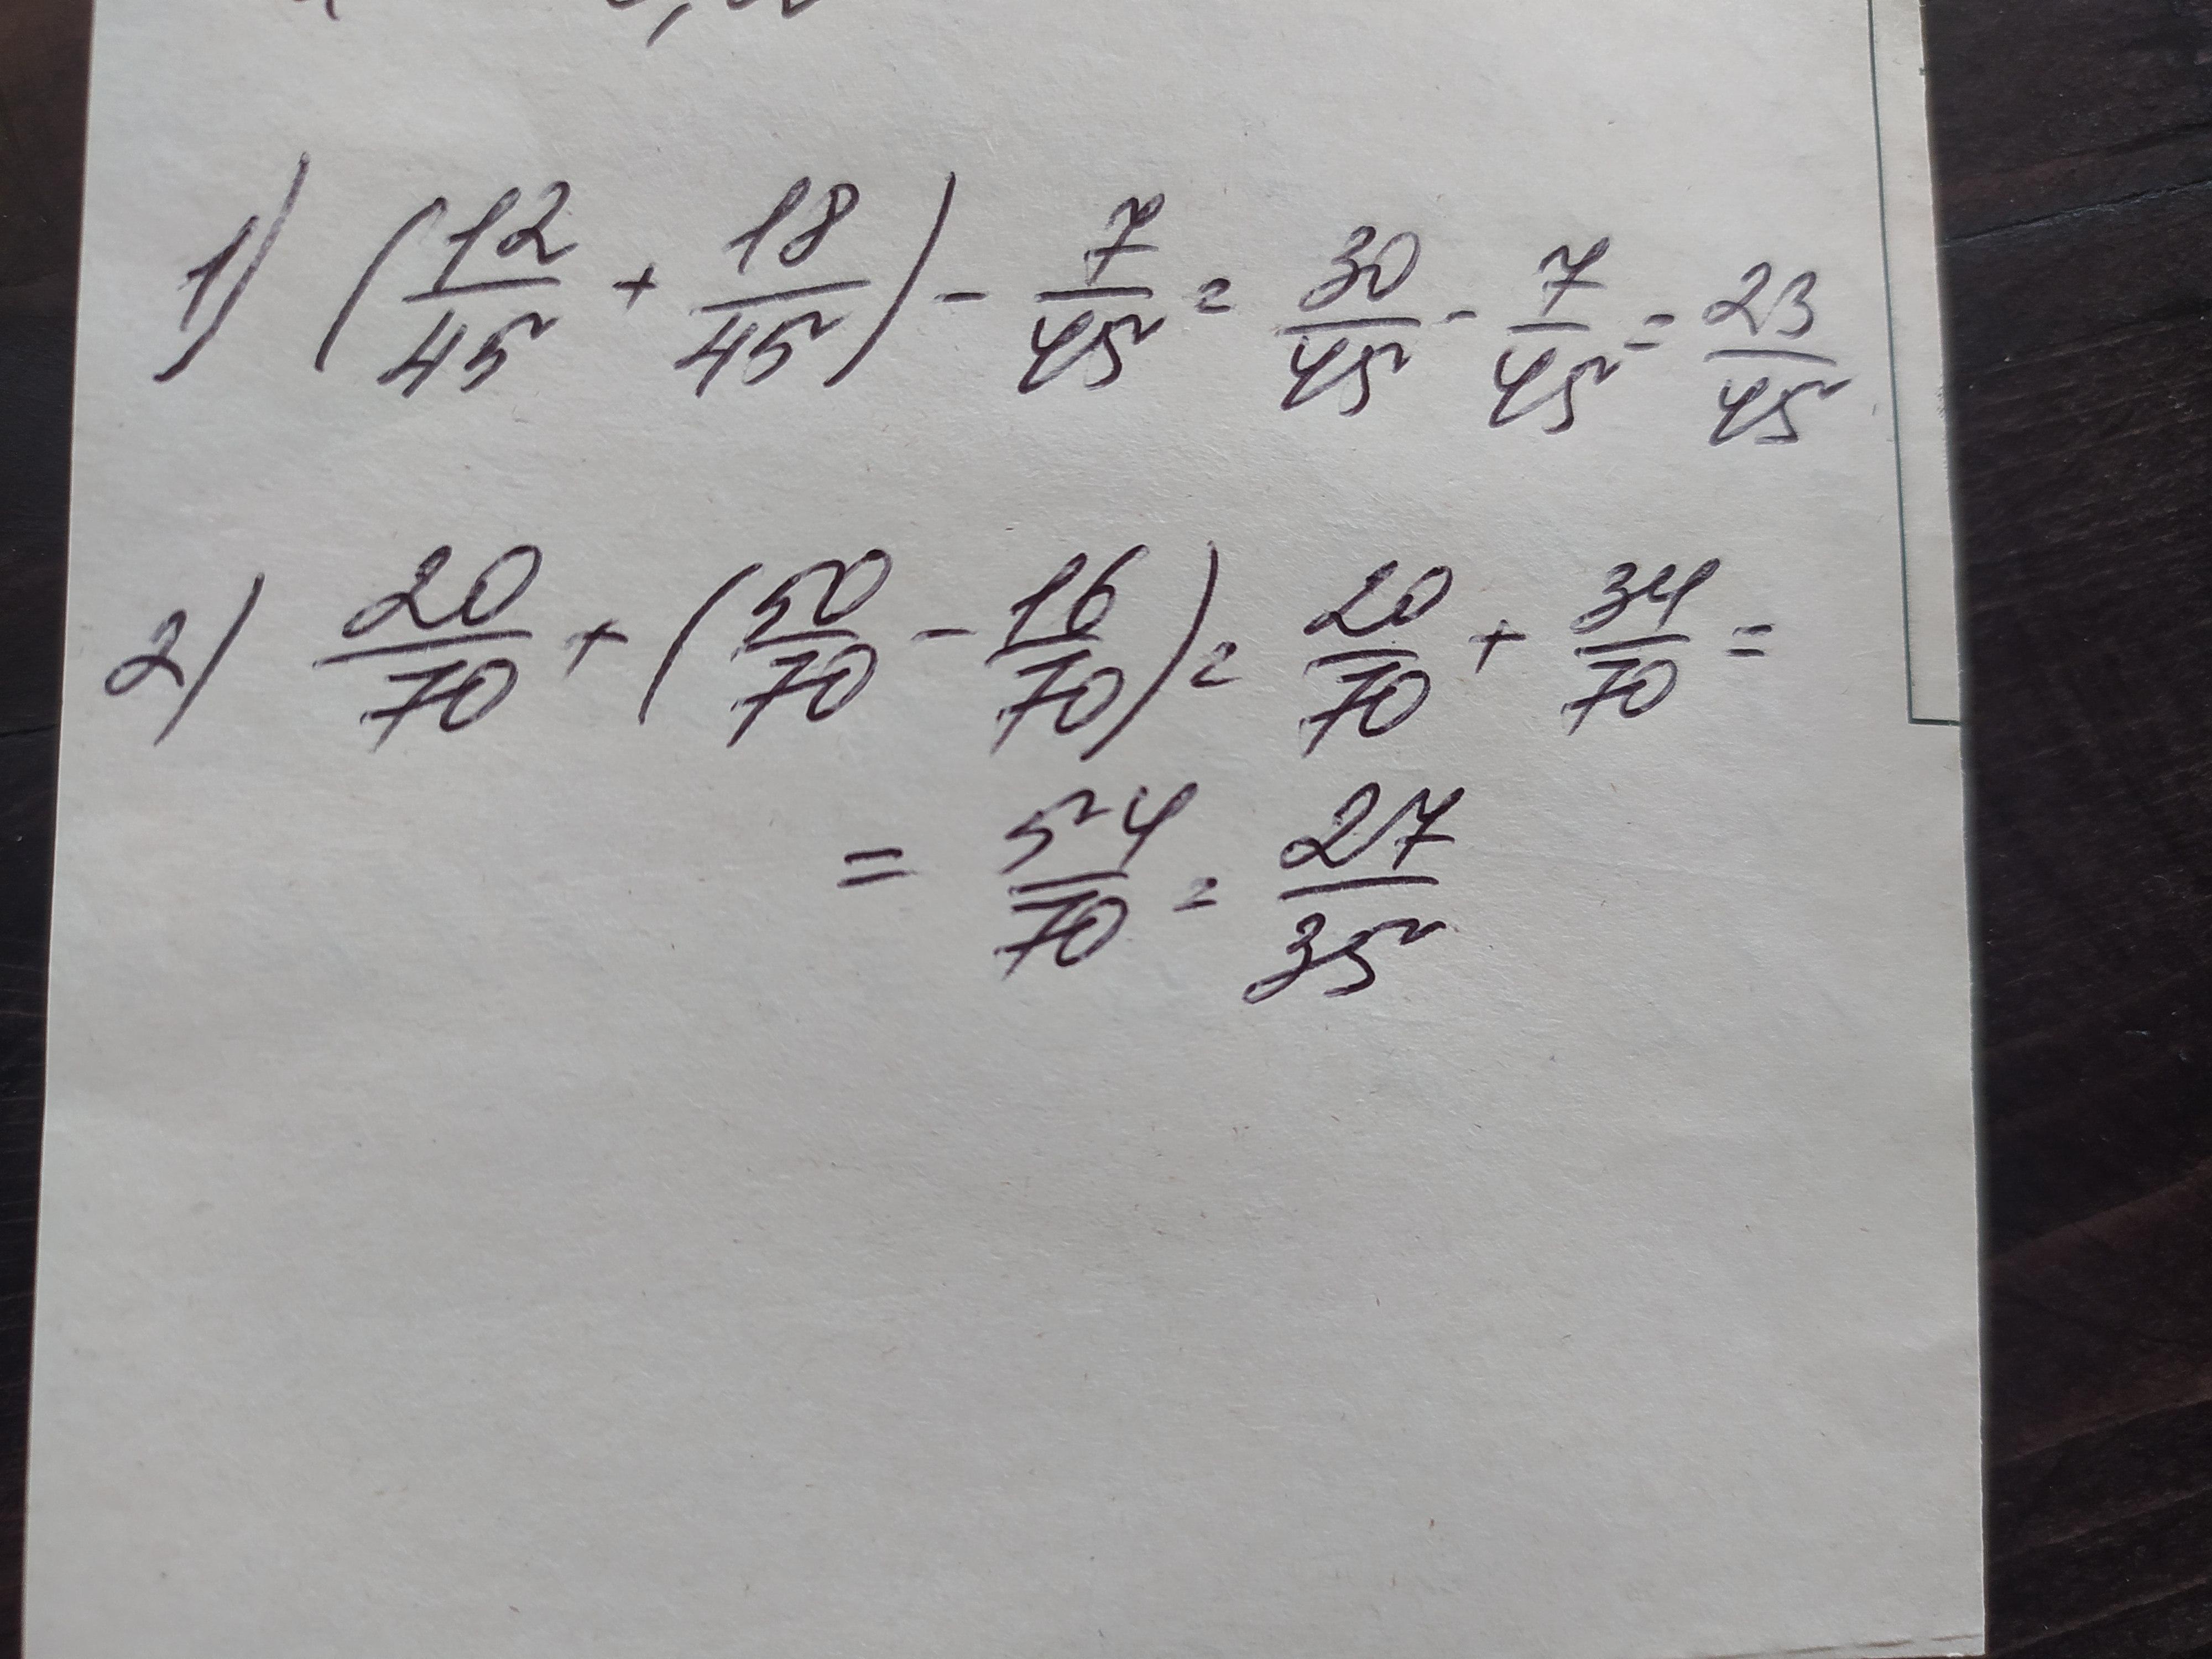 1) (12/45 + 18/45) - 7/45 = 30/45 - 7/45 = 23/45
2) 20/70 + (50/70 - 16/70) = 20/70 + 34/70 =
= 54/70 = 27/35